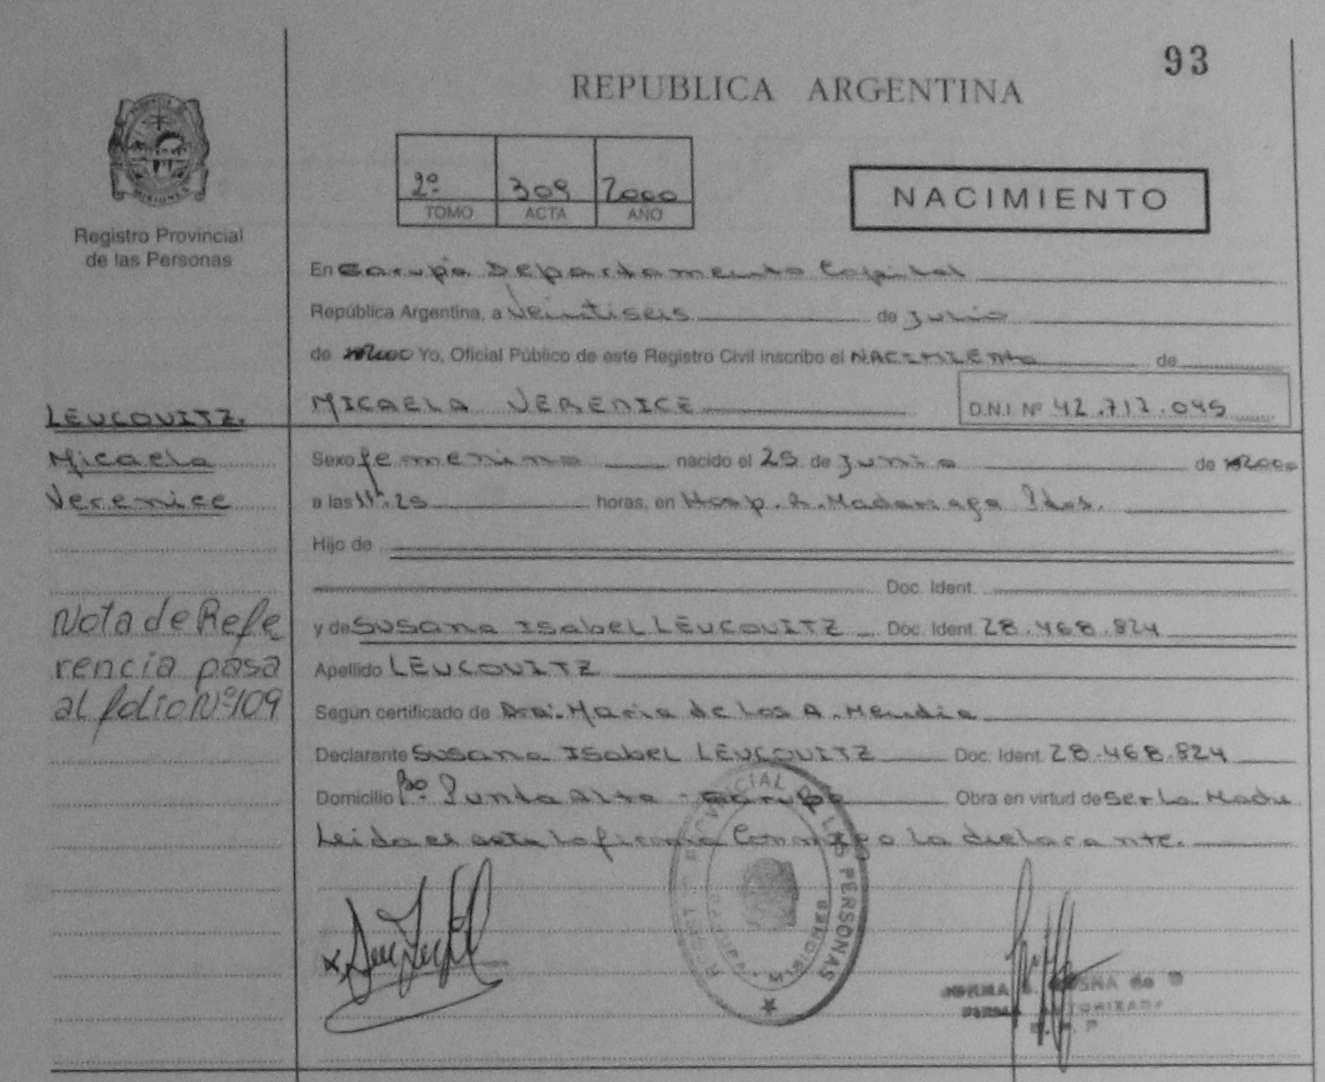 93
REPUBLICA ARGENTINA
2º 309 2000
TOMO ACTA AÑO
NACIMIENTO
MISIONES
Registro Provincial
de las Personas
En Garupá Departamento Capital
República Argentina, a Veintiseis de Junio
de 2000 Yo, Oficial Público de este Registro Civil inscribo el NACIMIENto de
MICAELA VERENICE D.N.I. Nº 42.712.045
LEUCOVITZ.
Micaela
Verenice
Sexo femenino nacido el 25 de Junio de 2000
a las 11:25 horas, en Hosp. R. Madariaga Pdas.
Hijo de
Doc. Ident.
y de SUSANA ISAbEL LEUCOVITZ Doc. Ident. 28.468.824
Apellido LEUCOVITZ
Según certificado de Dra. Maria de los A. Mendia
Declarante SUSANA ISAbEL LEUCOVITZ Doc. Ident. 28.468.824
Domicilio Bº Punta Alta - Garupá Obra en virtud de Ser La Madre
Leida el acta la firma Conmigo La declarante.
Nota de Refe
rencia pasa
al folio Nº 109
PROVINCIAL DE LAS PERSONAS
MISIONES
NORMA
FIRMA AUTORIZADA